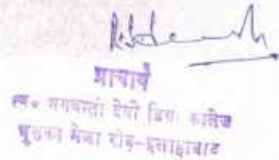 प्राचार्य
स्व० भगवन्ती देवी डिग्री कालेज
मेजा रोड-इलाहाबाद